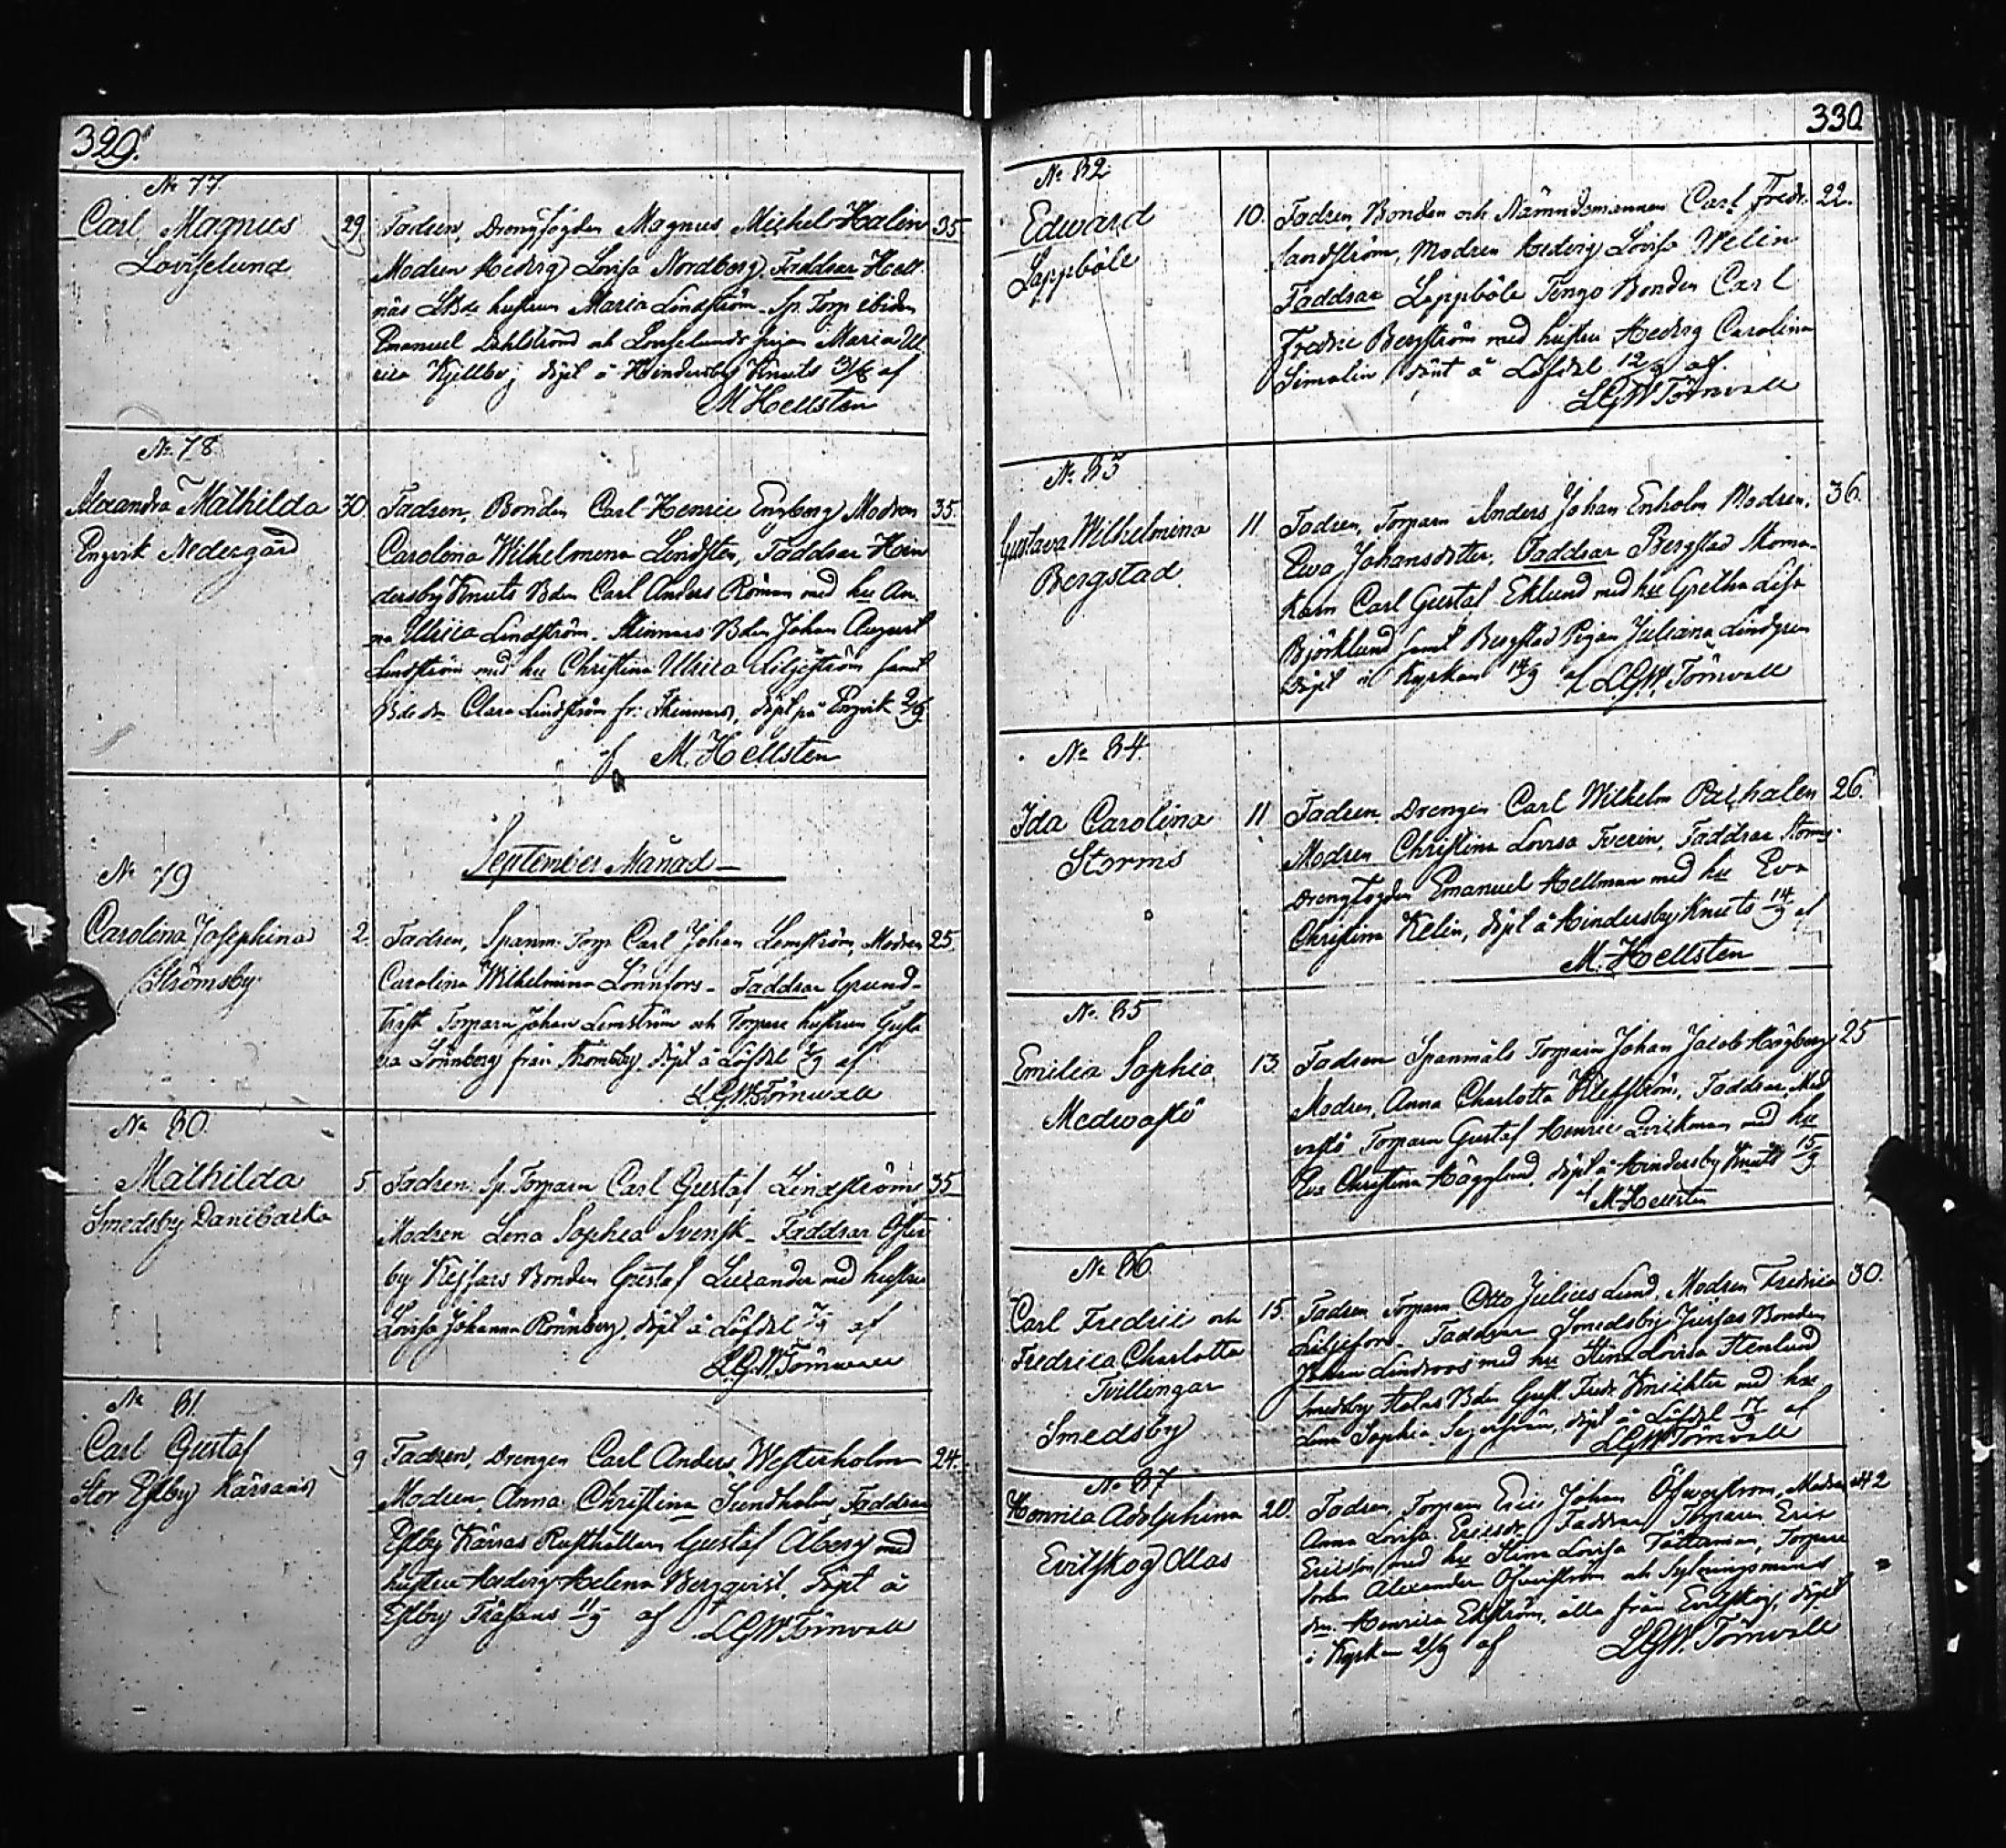 329.
No 77.
Carl Magnus
Loviselund
29
Fadren, Drengfogden Magnus Michel Halin
35
Modren Hedvig Lovisa Nordberg, Faddrar Hell
näs hustrun Maria Lindström. Sp. Torp ibiden
Emanuel och Maria Ul
rica Kjellberg döpt å Hindersby Knuts af
M Hellsten
No 78
Alexandra Mathilda
Engvik Nedergård
30
Fadren, Bonden Carl Henric Engberg Modren
35.
Carolina Wilhelmina Lindsten, Faddrar Hin
dersby Knuts Bden Carl Anders Röman med hu An
na Ulrica Lindström. Skinnars Bden Johan August
Lindström med hu Christina Ulrica Liljeström samt
Clara Lindström fr. Skinnars, döpt på Engvik
af M. Hellsten
September Månad
No 79
Carolina Josephina
Strömsby
2.
Fadren, Spanm. Torp. Carl Johan Lemström, Modren
25.
Carolina Wilhelmina Lönnfors. Faddrar Grund-
träsk Torparn Johan Lemström och Torpare hustrun Gusta
va Lönnberg från Strömsby, döpt å Löfdal af
LGW Törnvall
No 80.
Mathilda
Smedsby Danibacka
5
Fadren. Sp. Torparn Carl Gustaf Lindström
35
Modren Lena Sophia Svensk. Faddrar Öster
by Kejsars Bonden Gustaf med hustru
Lovisa Johanna Rönnberg, döpt å Löfdal af
L.G.W. Törnvall
No 81.
Carl Gustaf
Stor Esby Kärsans
9
Fadren, Drengen Carl Anders Westerholm
24.
Modren, Anna Christina Sundholm, Faddrar
Esby Kärsas Rusthållarn Gustaf Åberg med
hustru Hedvig Helena Bergqvist, döpt å
Esby Träsans 11/9 af LGW Törnvall
330
No 82
Edward
Lappböle
10.
Fadren, Bonden och Nämndemannen Carl Fredr.
22.
Sandström, Modren Hedvig Lovisa Welin
Faddrar Lappböle Bonden Carl
Fredric Bergström med hustru Hedvig Carolina
Simolin, döpt å Löfdal 12/9 af
LGW Törnvall
No 83
Gustava Wilhelmina
Bergstad
11
Fadren, Torparn Anders Johan Enholm Modren,
36.
Ewa Johansdotter, Faddrar Bergstad Skoma-
karn Carl Gustaf Eklund med hu Gretha Lisa
Björklund samt Bergstad Pigan Juliana Lindgren
Döpt i Kyrkan 14/9 af LGW. Törnvall
No 84.
Ida Carolina
Storms
11
Fadren Drengen Carl Wilhelm
26.
Modren Christina Lovisa Faddrar Storms
Drengfogden Emanuel Hellman med hu Eva
Christina Kelin, döpt å Hindersby Knuts 14/9 af
M. Hellsten
No. 85
Emilia Sophia
Medwastö
13.
Fadren Spanmåls Torparn Johan Jacob Högberg
25
Modren, Anna Charlotta Faddrar, Med
vastö Torparn Gustaf Henric med hu
Eva Christina Hägglund, döpt å Hindersby Knuts 15/9
af M. Hellsten
No 86
Carl Fredric och
Fredrica Charlotta
Tvillingar
Smedsby
15.
Fadren Torparn Otto Julius Lund, Modren Fredrica
30.
Liljefors. Faddrar Smedsby Jusfas Bonden
Johan Lindroos med hu Stina Lovisa Stenlund
Smedsby Bden Gust. Fredr. med hu
Lena Sophia döpt å Löfdal 17/9 af
LGW Törnvall
No 87
Henrica Adolphina
Evitskog Ollas
20.
Fadren, Torparn Eric Johan Öfverström, Modren
42
Anna Lovisa Ericsdr. Faddrar Torparn Eric
Ericsson med hu Stina Lovisa Torpare
sonen Alexander Öfverström och
dtr. Henrica Ekström, alla från Evitskog, döpt
i Kyrkan 21/9 af LGW. Törnvall